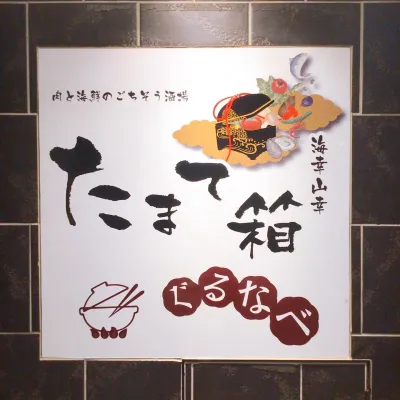 肉と海鮮のごちそう酒場
海幸山幸
たまて箱
ぐるなべ